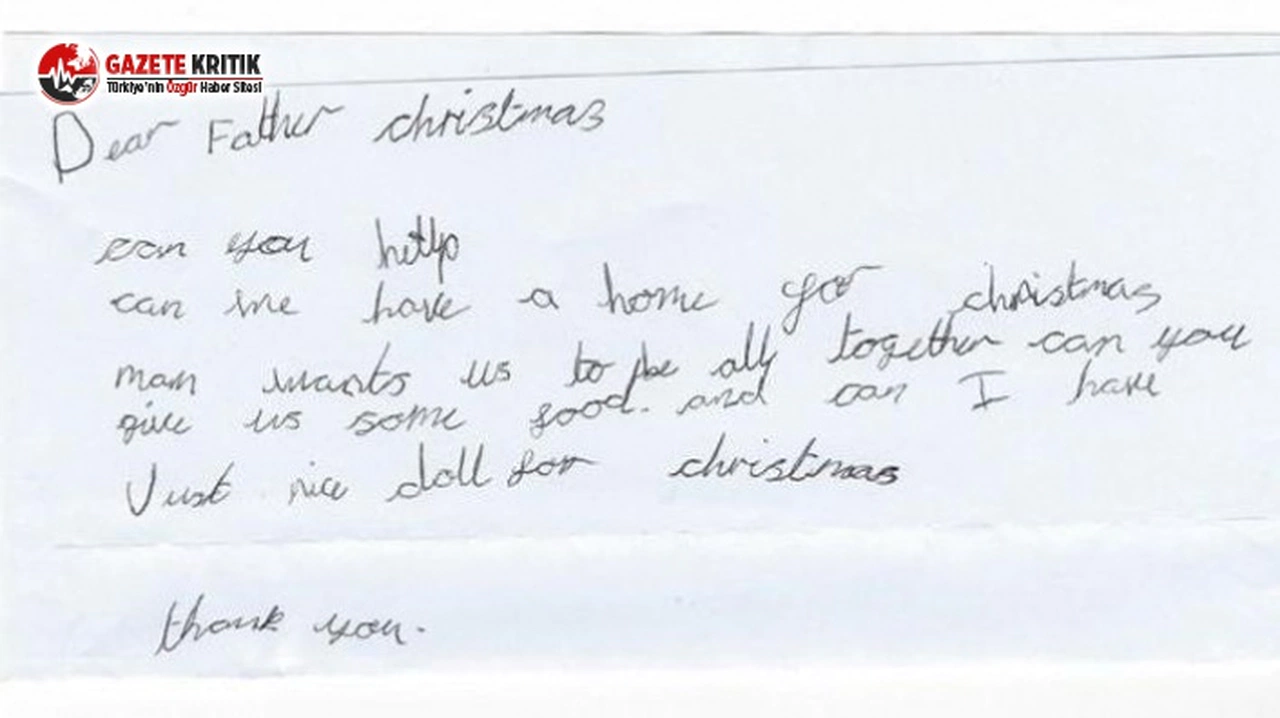 GAZETE KRITIK
Türkiye'nin Özgür Haber Sitesi
Dear Father christmas
can you help
can we have a home for christmas
mam wants us to be all together can you
give us some food. and can I have
Just nice doll for christmas
thank you.